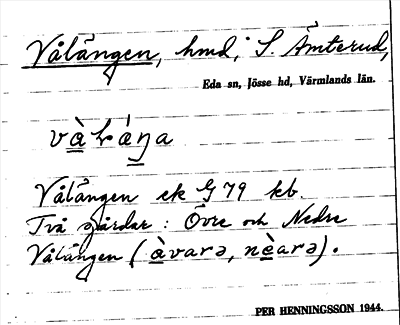 Vålängen, hmd, S. Ämterud,
Eda sn, Jösse hd, Värmlands län.
Vålängen ek G 79 kb.
Två gårdar : Övre och Nedre
Vålängen (àvarə, nèarə).
PER HENNINGSSON 1944.